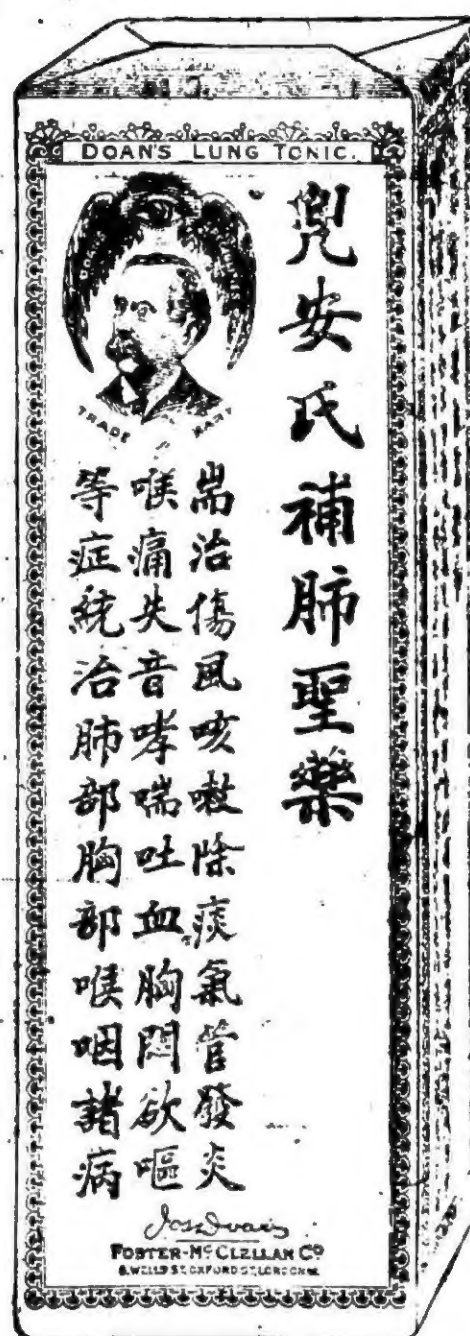 DOAN'S LUNG TONIC.
兜安氏補肺聖藥
TRADE MARK
耑治傷風咳嗽除痰氣管發炎
喉痛失音哮喘吐血胸悶欲嘔
等症統治肺部胸部喉咽諸病
Jas Doan
FOSTER-McCLELLAN Co
8, WELLS ST, OXFORD ST, LONDON W.